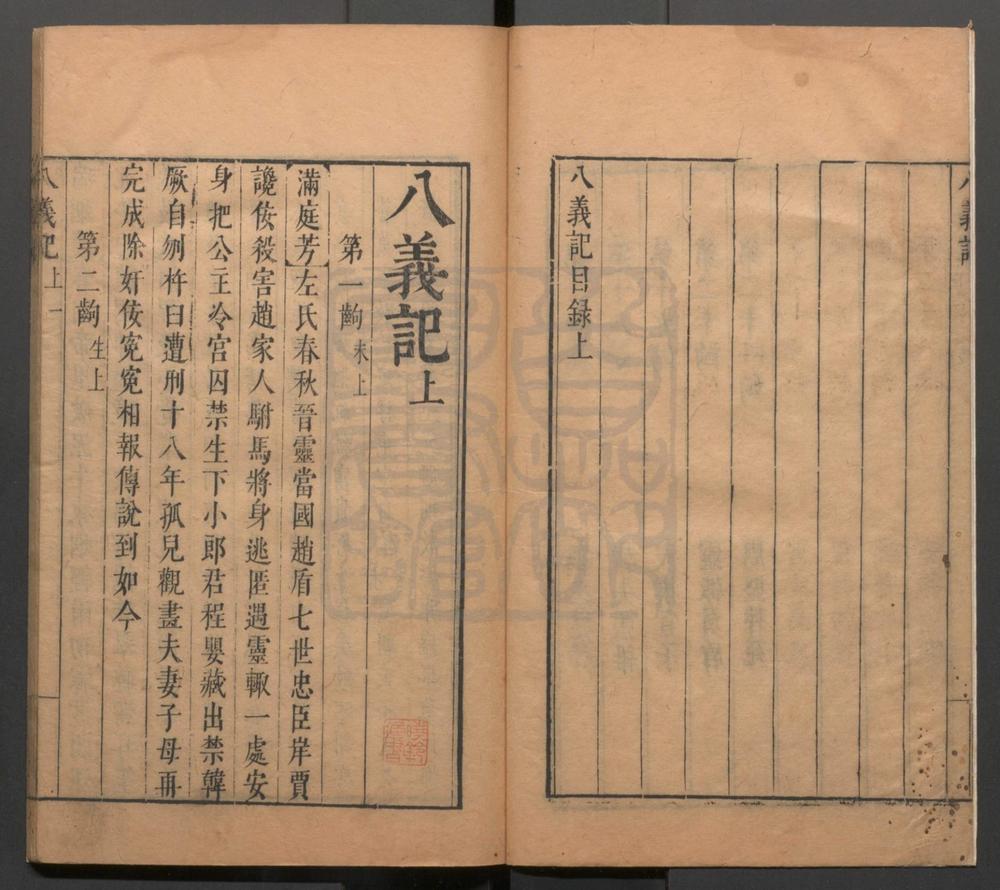 八義記目録上
八義記上
第一齣 末上
【滿庭芳】左氏春秋晉靈當國趙盾七世忠臣岸賈
讒佞殺害趙家人駙馬將身逃匿遇靈輙一處安
身把公主冷宮囚禁生下小郎君程嬰藏出禁韓
厥自刎杵臼遭刑十八年孤兒觀畫夫妻子母再
完成除奸佞寃寃相報傳說到如今
第二齣 生上
八義記 上 一